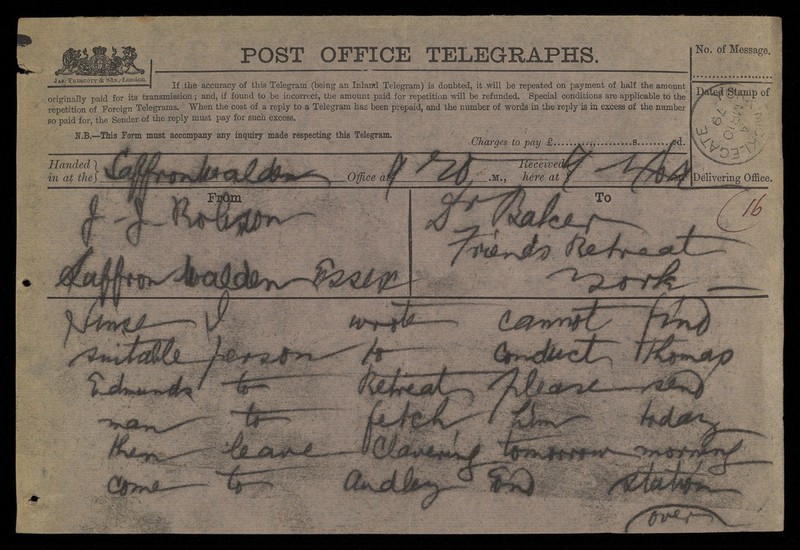 POST OFFICE TELEGRAPHS.
No. of Message.
JAS. TRUSCOTT & SON, London.
If the accuracy of this Telegram (being an Inland Telegram) is doubted, it will be repeated on payment of half the amount
originally paid for its transmission; and, if found to be incorrect, the amount paid for repetition will be refunded. Special conditions are applicable to the
repetition of Foreign Telegrams. When the cost of a reply to a Telegram has been prepaid, and the number of words in the reply is in excess of the number
so paid for, the Sender of the reply must pay for such excess.
N.B.—This Form must accompany any inquiry made respecting this Telegram.
Charges to pay £ s. d.
Dated Stamp of
Delivering Office.
Handed in at the Saffronwalden Office at 9 20 .M., Received here at 9
From
J J Robinson
Saffron Walden Essex
To
Dr Baker
Friends Retreat
York
16
Since I wrote cannot find
suitable person to conduct Thomas
Edmunds to Retreat please send
man to fetch him today
them leave Clavering tomorrow morning
come to Audley End station
over